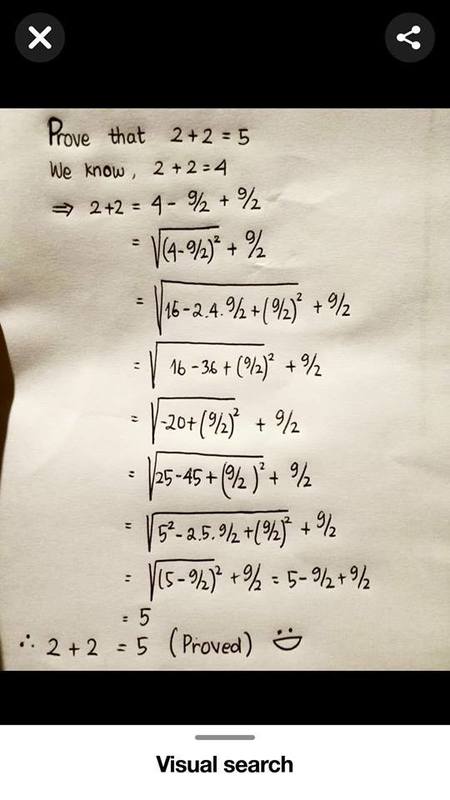 Prove that 2+2=5
We know, 2+2=4
⇒ 2+2 = 4 - 9/2 + 9/2
= √(4-9/2)² + 9/2
= √16-2.4.9/2+(9/2)² + 9/2
= √16-36+(9/2)² + 9/2
= √-20+(9/2)² + 9/2
= √25-45+(9/2)² + 9/2
= √5²-2.5.9/2+(9/2)² + 9/2
= √(5-9/2)² + 9/2 = 5-9/2+9/2
= 5
∴ 2+2 = 5 (Proved)
Visual search